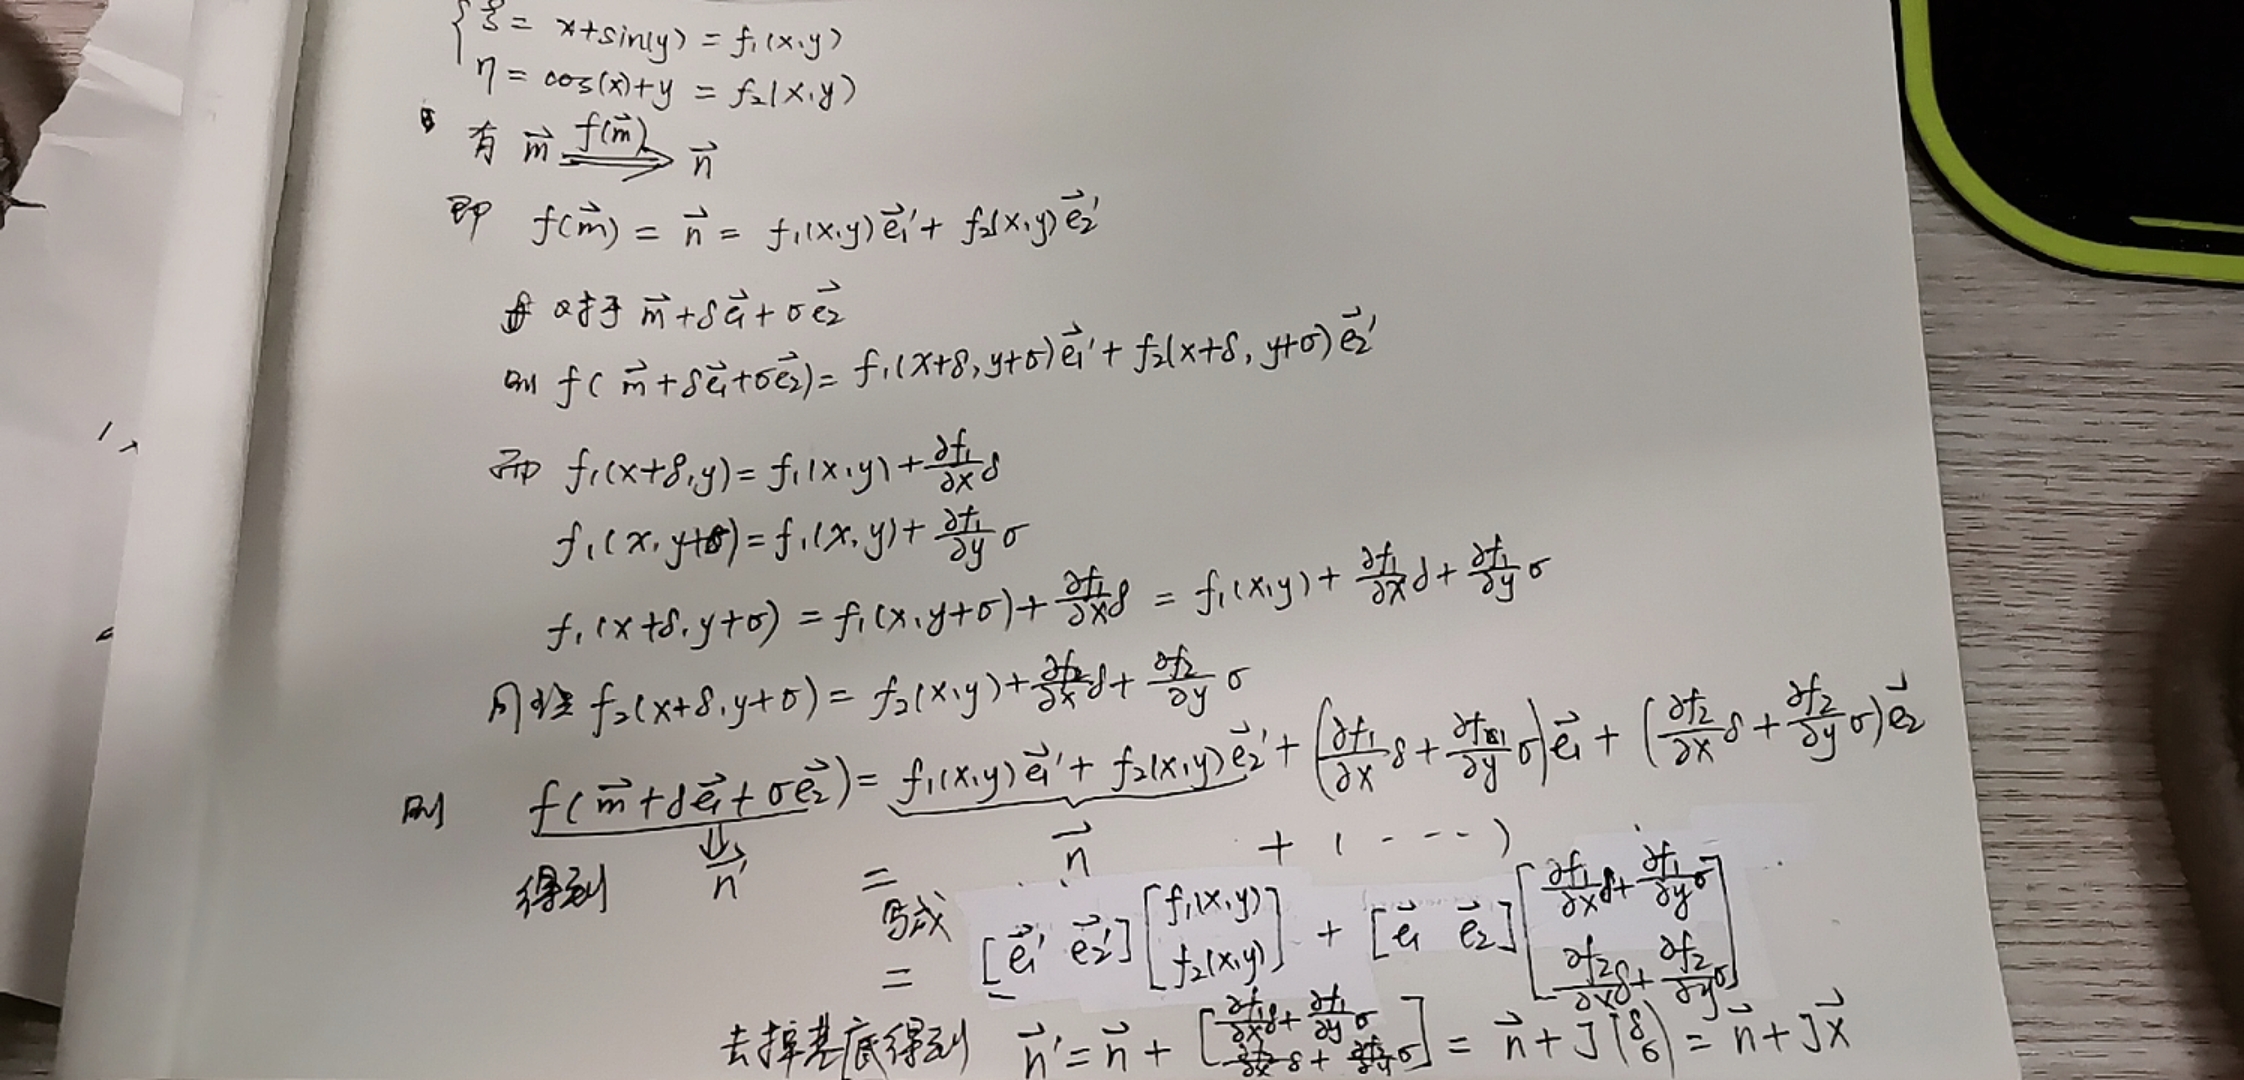 {ξ = x+sin(y) = f₁(x,y)
η = cos(x)+y = f₂(x,y)
有 m⃗ ⟹ f(m⃗) n⃗
即 f(m⃗) = n⃗ = f₁(x,y)e⃗₁' + f₂(x,y)e⃗₂'
对于 m⃗+δe⃗₁+σe⃗₂
则 f(m⃗+δe⃗₁+σe⃗₂) = f₁(x+δ, y+σ)e⃗₁' + f₂(x+δ, y+σ)e⃗₂'
即 f₁(x+δ,y) = f₁(x,y) + ∂f₁/∂x δ
f₁(x,y+σ) = f₁(x,y) + ∂f₁/∂y σ
f₁(x+δ,y+σ) = f₁(x,y+σ) + ∂f₁/∂x δ = f₁(x,y) + ∂f₁/∂x δ + ∂f₁/∂y σ
同理 f₂(x+δ,y+σ) = f₂(x,y) + ∂f₂/∂x δ + ∂f₂/∂y σ
则 f(m⃗+δe⃗₁+σe⃗₂) = f₁(x,y)e⃗₁' + f₂(x,y)e⃗₂' + (∂f₁/∂x δ + ∂f₁/∂y σ)e⃗₁ + (∂f₂/∂x δ + ∂f₂/∂y σ)e⃗₂
得到 ⇓ n⃗' = n⃗ + (----)
写成 = [e⃗₁' e⃗₂'] [f₁(x,y) f₂(x,y)] + [e⃗₁ e⃗₂] [∂f₁/∂x δ + ∂f₁/∂y σ ∂f₂/∂x δ + ∂f₂/∂y σ]
去掉基底得到 n⃗' = n⃗ + [∂f₁/∂x δ + ∂f₁/∂y σ ∂f₂/∂x δ + ∂f₂/∂y σ] = n⃗ + J[δ σ] = n⃗ + Jx⃗